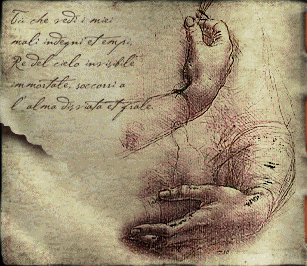 Tu che vedi i miei
mali indegni et empi,
Re del cielo invisibile
immortale, soccorri a
l'alma disviata et frale.